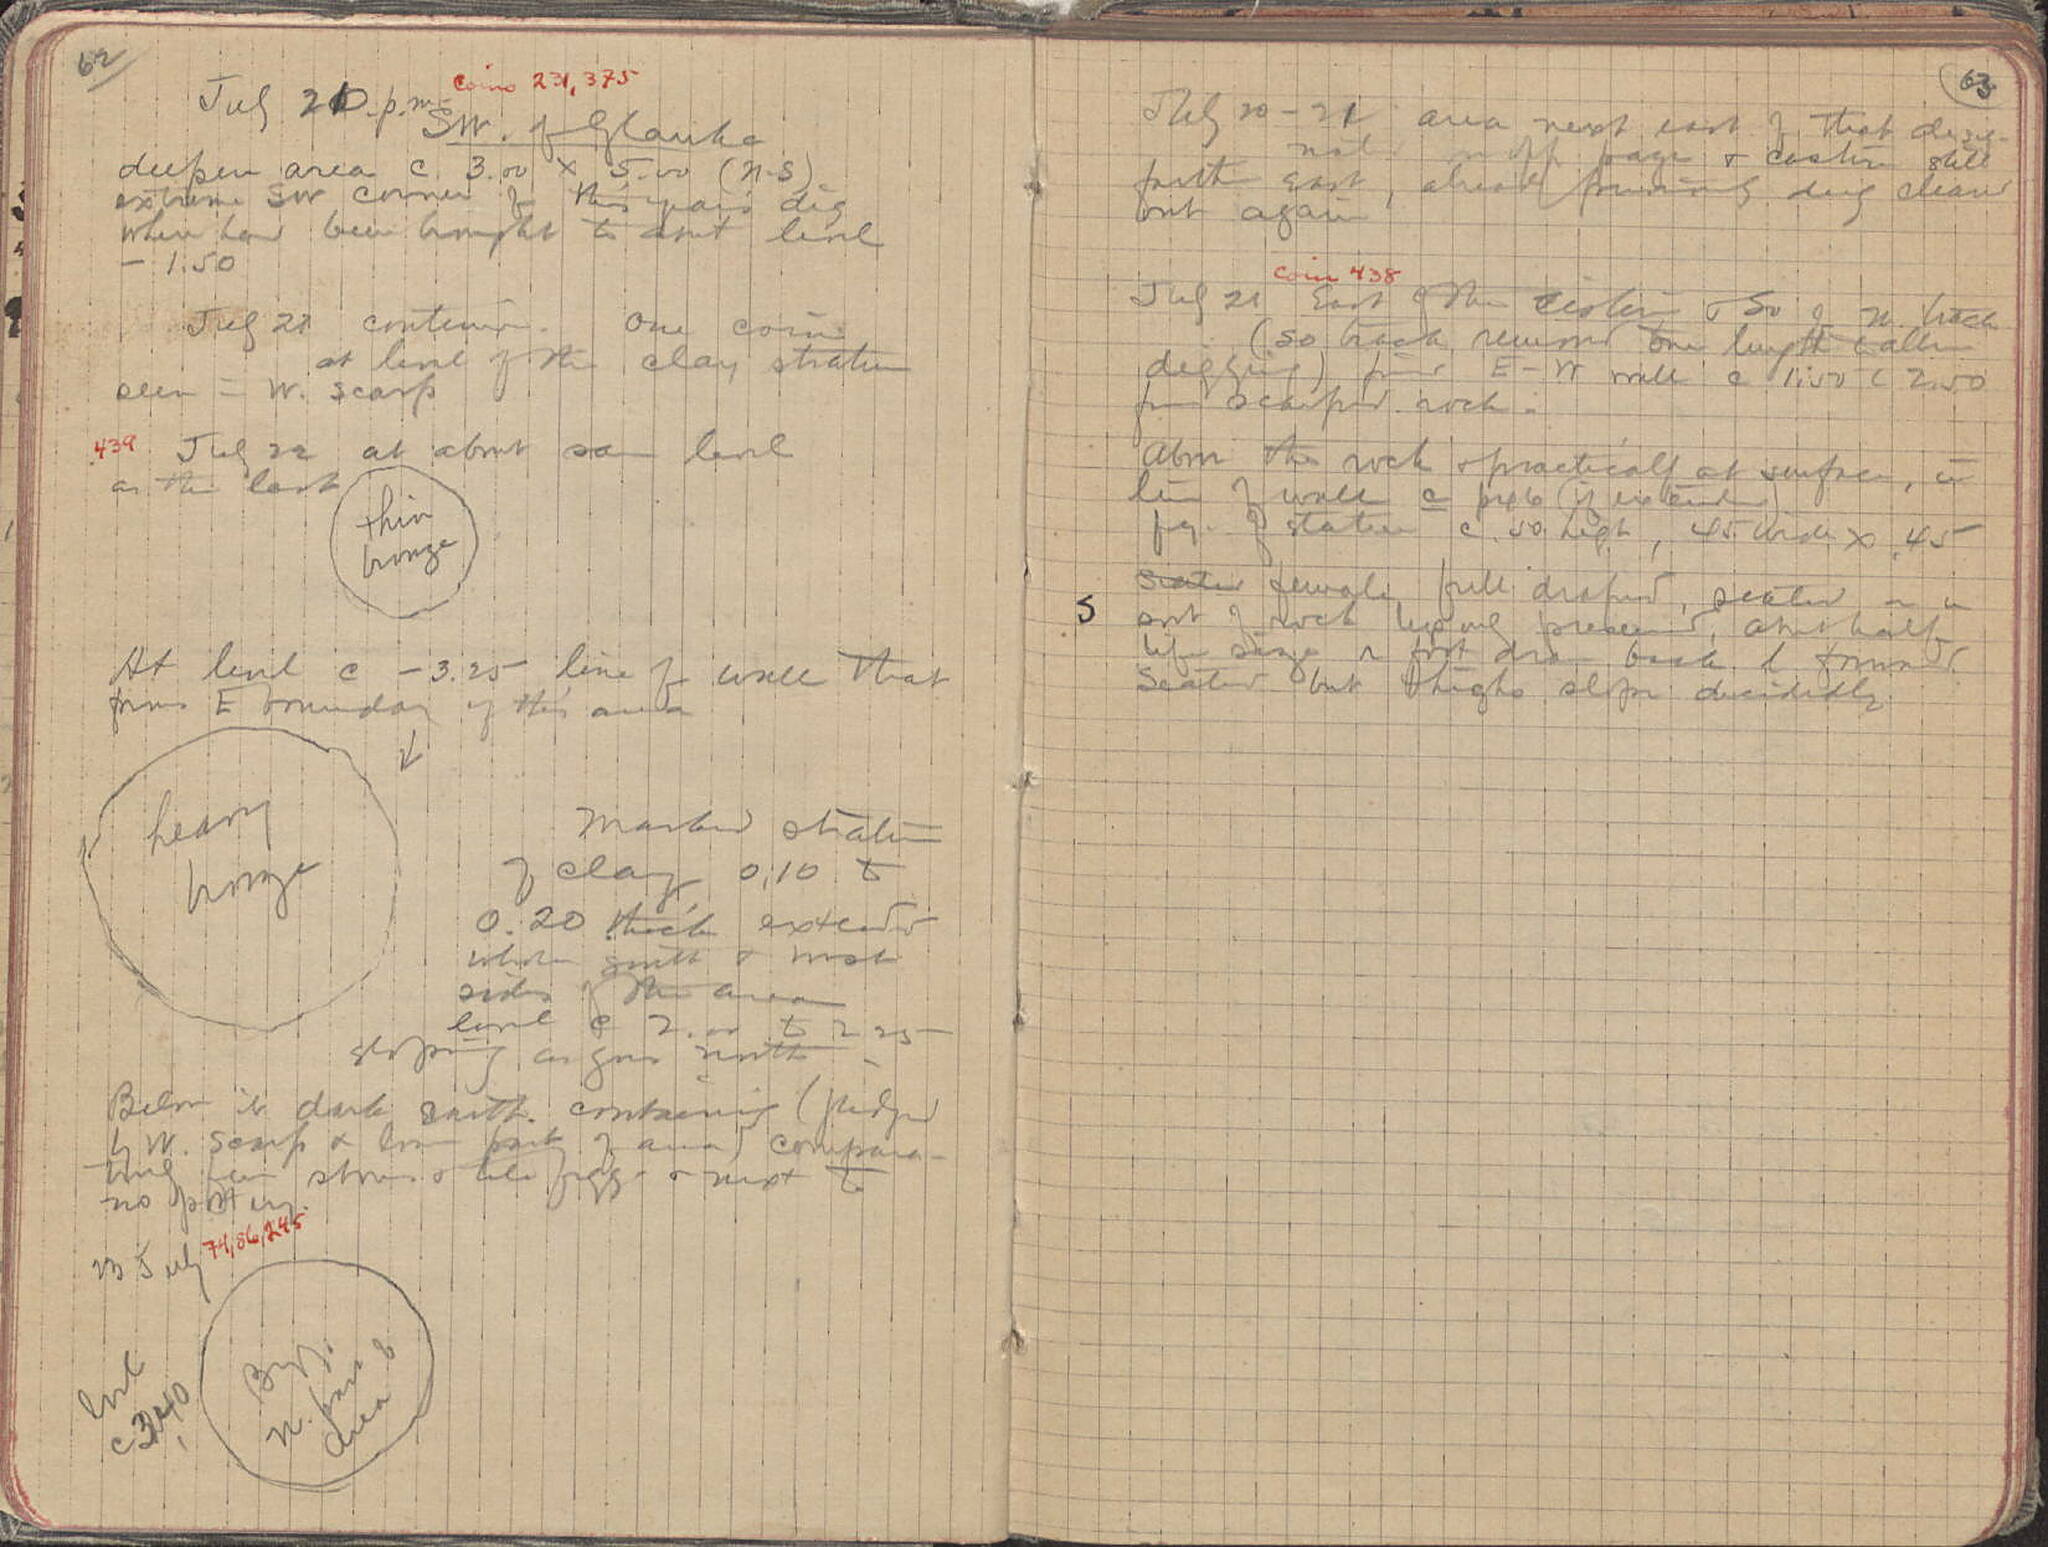 62
Coins 231, 375
July 20 p.m.
SW. of Glauke
deepen area c. 3.00 x 5.00 (N-S)
extreme SW corner of this year's dig
where had been brought to about level
- 1.50
July 21 continue. One coin
at level of the clay stratum
seen in W. scarp
439 July 22 at about same level
as the last
thin
bronze
At level c - 3.25 line of wall that
forms E boundary of this area
heavy
bronze
Marked stratum
of clay 0.10 to
0.20 thick extends
whole south & west
sides of the area
level c 2.00 to 2.25
sloping as goes north
Below is dark earth containing (judged
by W. scarp & lower part of area) compara-
tively few stones & tile frggs & next to
no pottery
23 July 74, 86, 245
level
c 3.40
Byz.
N. part of
area
63
July 20 - 21 area next east of that desig-
nated on opp. page & cistern still
further East, already previously dug cleaned
out again
Coin 438
July 21 East of the cistern & So of N. track
(So track removed one length
digging) find E-W wall c 1.50 2.50
from scarped rock.
Above the rock & practically at surface, in
line of wall c p 26 (if extended)
frg. of statue c .50 high, .45 wide x .45
S
Seated female, full draped, seated on a
sort of rock legs only preserved, about half
life size r foot drawn back l forward.
Seated but thighs slope decidedly